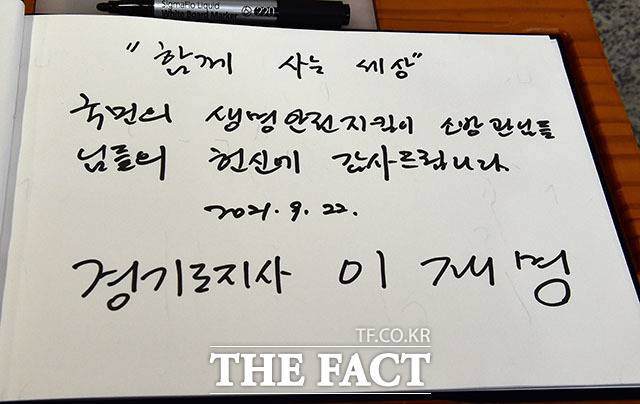 SigmaFlo Liquid
White Board Marker
220
"함께 사는 세상"
국민의 생명안전지킴이 소방관님들
님들의 헌신에 감사드립니다.
2021. 9. 22.
경기도지사 이재명
TF.CO.KR
THE FACT